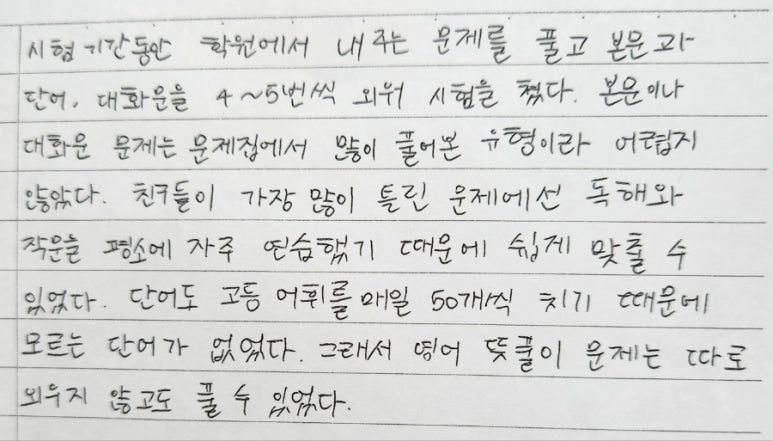 시험기간동안 학원에서 내주는 문제를 풀고 본문과
단어, 대화문을 4~5번씩 외워 시험을 쳤다. 본문이나
대화문 문제는 문제집에서 많이 풀어본 유형이라 어렵지
않았다. 친구들이 가장 많이 틀린 문제에선 독해와
작문을 평소에 자주 연습했기 때문에 쉽게 맞출 수
있었다. 단어도 고등 어휘를 매일 50개씩 치기 때문에
모르는 단어가 없었다. 그래서 영어 뜻풀이 문제는 따로
외우지 않고도 풀 수 있었다.